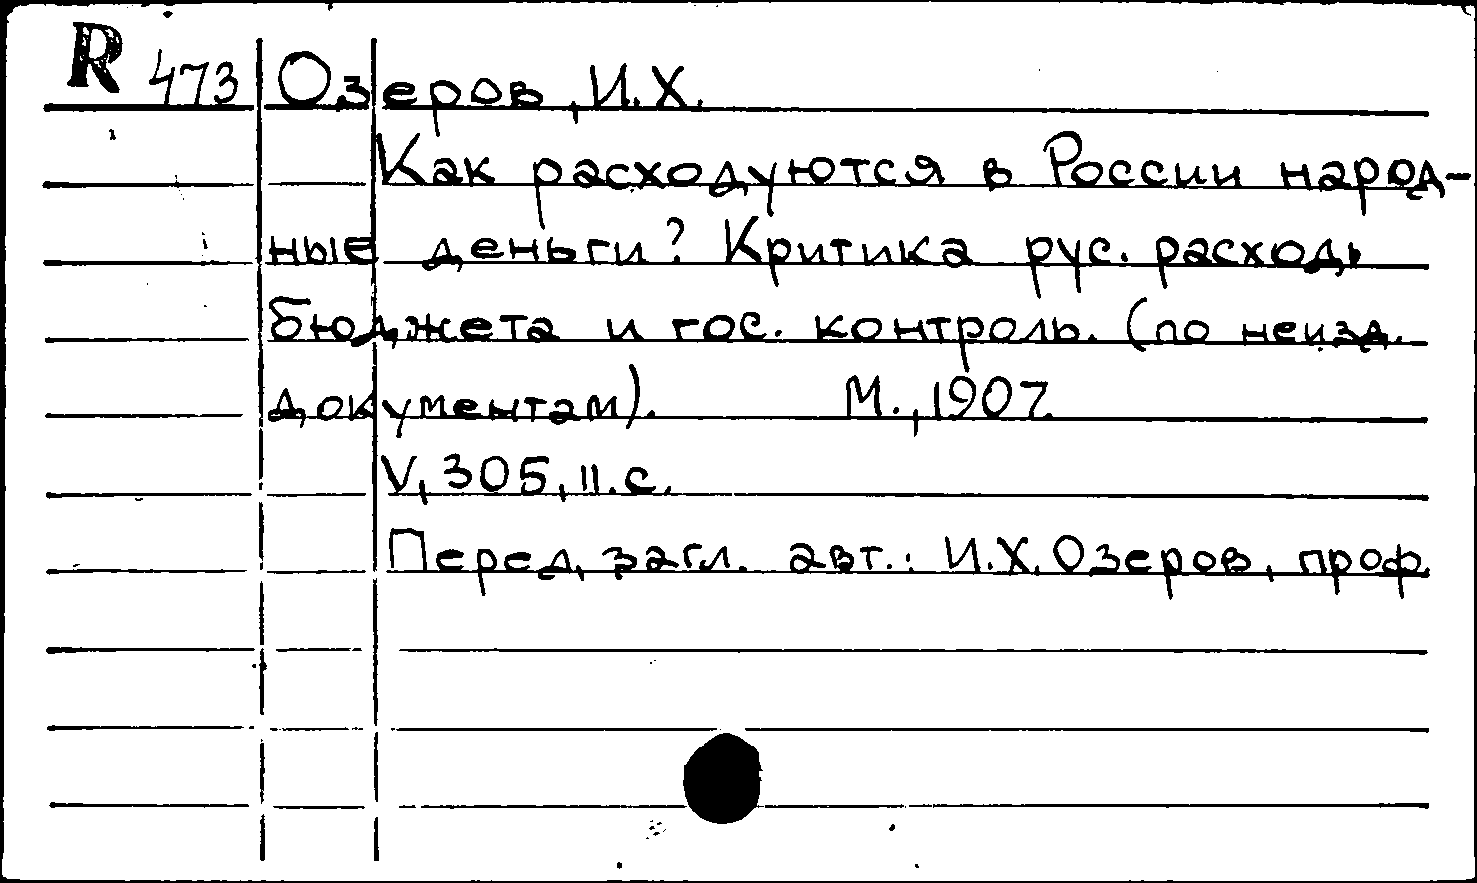 R 473 Озеров, И.Х.
Как расходуются в России народ-
ные деньги? Критика рус. расход.
бюджета и гос. контроль. (по неизд.
документам). М., 1907.
V, 305, II.с.
Перед. загл. авт.: И.Х. Озеров, проф.